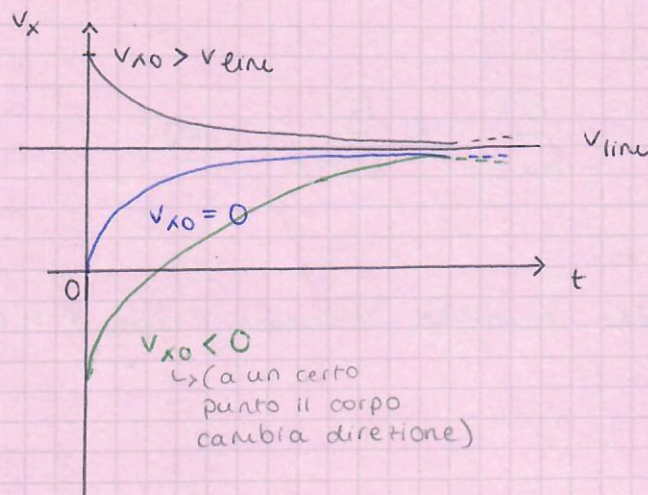 vx
vx0 > vlim
vlim
vx0 = 0
0
t
vx0 < 0
↳(a un certo
punto il corpo
cambia direzione)